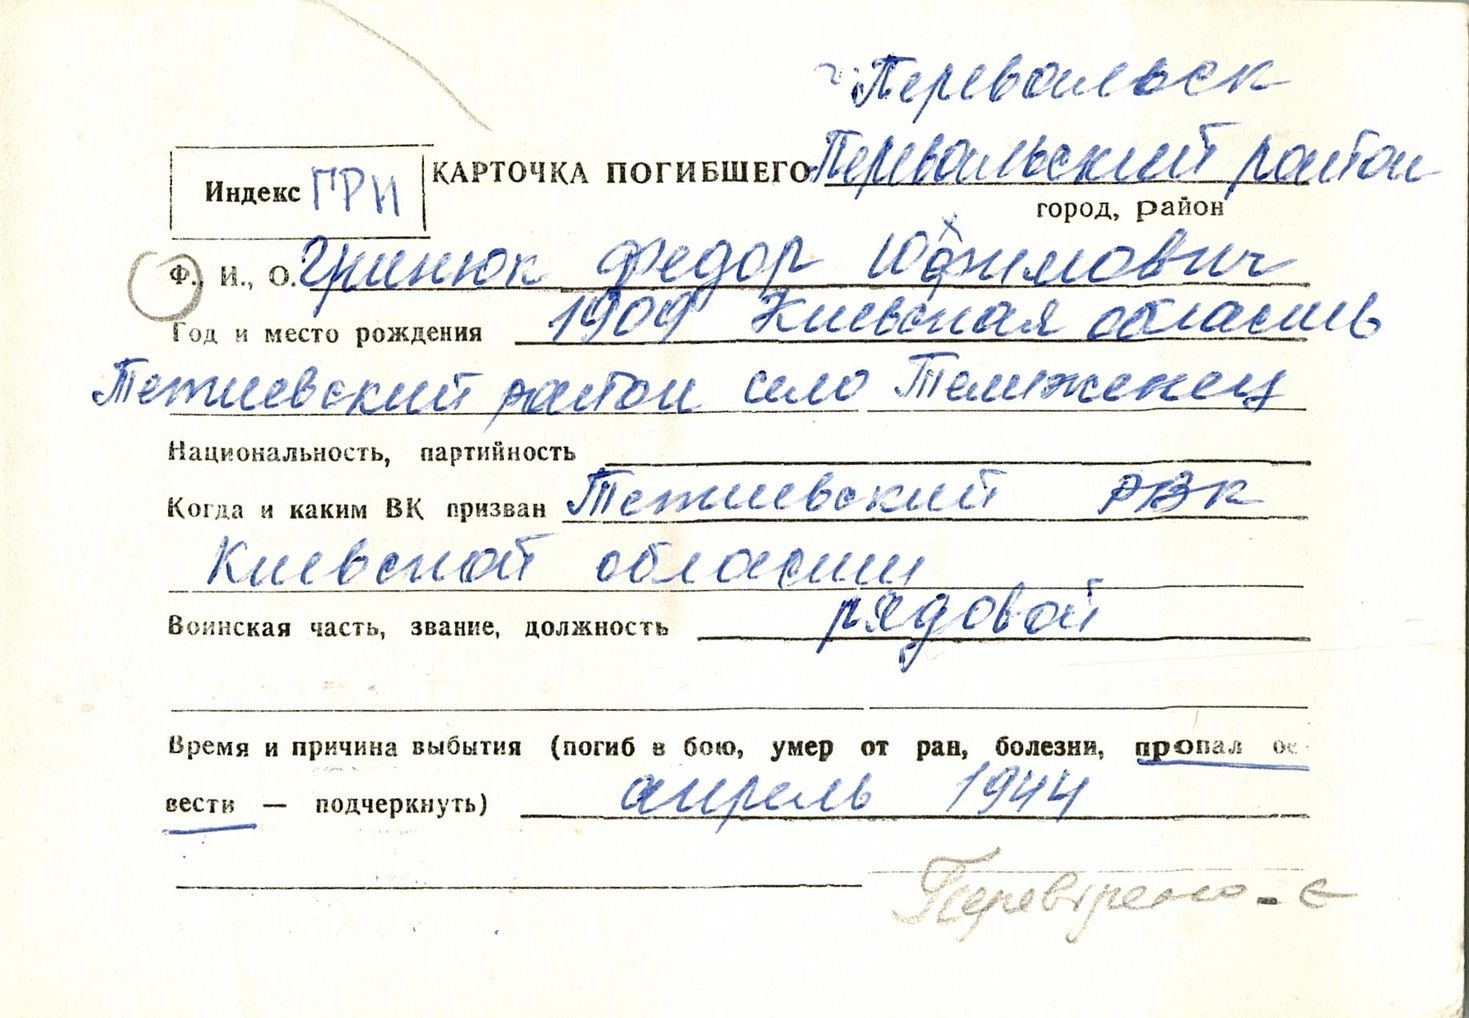 г. Перевальск
КАРТОЧКА ПОГИБШЕГО Перевальский район
Индекс ГРИ
город, район
Ф., И., О. Гринюк Федор Юхимович
Год и место рождения 1909 Киевская область
Тетиевский район село Телиженец
Национальность, партийность
Когда и каким ВК призван Тетиевский РВК
Киевской области
Воинская часть, звание, должность рядовой
Время и причина выбытия (погиб в бою, умер от ран, болезни, пропал бе
вести — подчеркнуть) апрель 1944
Перевірено - є